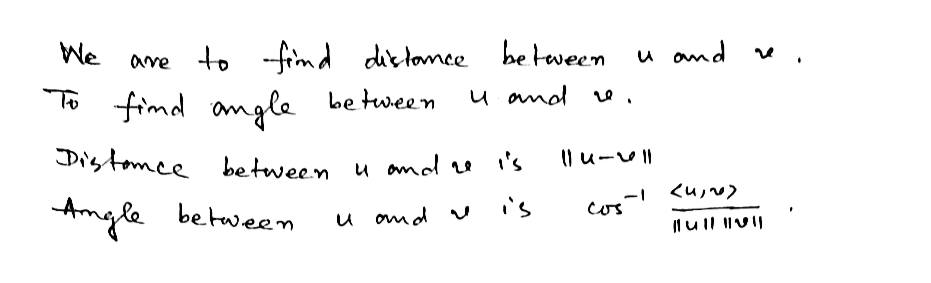 We are to find distance between u and v.
To find angle between u and v.
Distance between u and v is ||u-v||
Angle between u and v is cos⁻¹ <u,v> / ||u|| ||v|| .